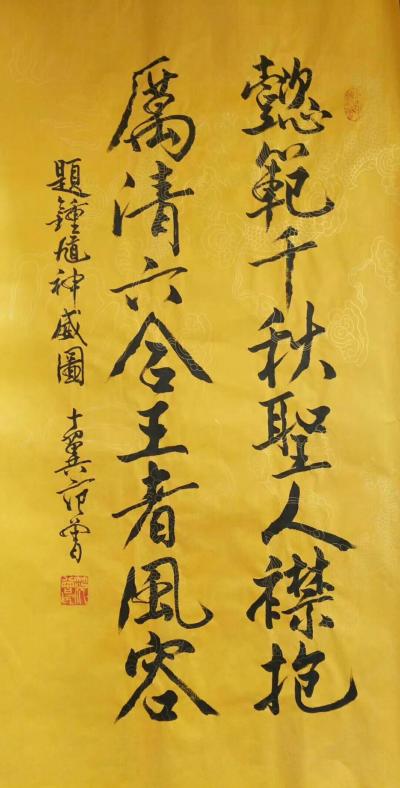 懿範千秋聖人襟抱
厲清六合王者風容
題鍾馗神威圖 十翼范曾